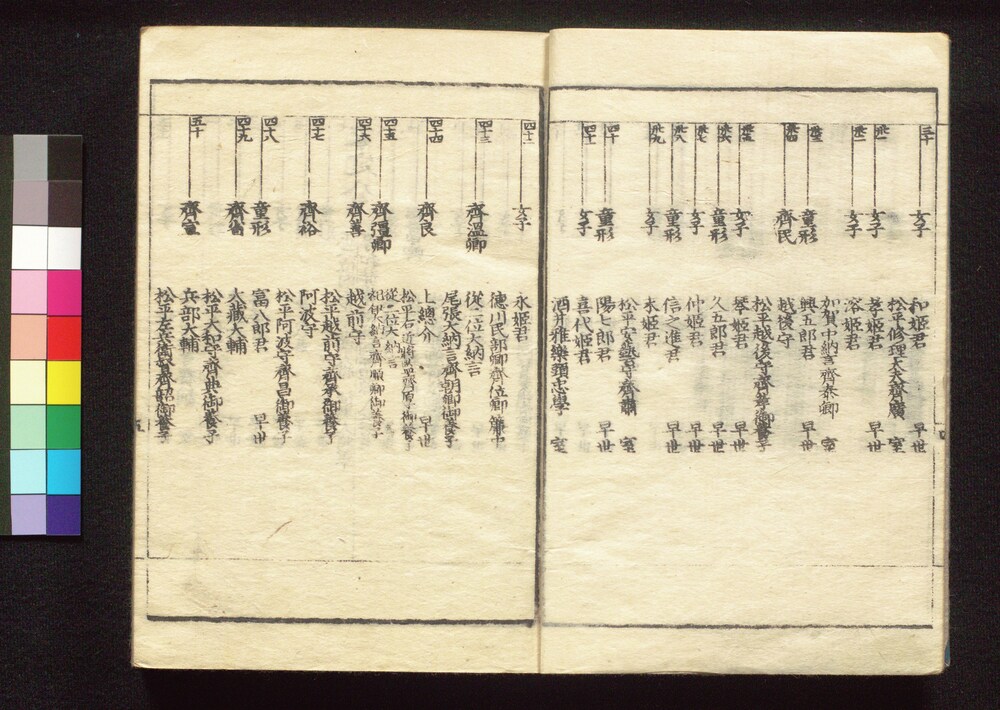 三十
女子
和姫君 早世
松平修理大夫齊廣 室
卅一
女子
孝姫君 早世
卅二
女子
溶姫君
加賀中納言齊泰卿 室
卅三
童形
興五郎君 早世
卅四
齊民
越後守
松平越後守齊孝御養子
卅五
女子
琴姫君 早世
卅六
童形
久五郎君 早世
卅七
女子
仲姫君 早世
卅八
童形
信之進君 早世
卅九
女子
末姫君
松平安藝守齊肅 室
四十
童形
陽七郎君 早世
四十一
女子
喜代姫君
酒井雅樂頭忠學 室
四十二
女子
永姫君
徳川民部卿齊位卿 簾中
四十三
齊溫卿
從二位大納言
尾張大納言齊朝卿御養子
四十四
齊良
上總介 早世
松平右近將監齊厚御養子
四十五
齊彊卿
從二位大納言
紀伊大納言齊順卿御養子
四十六
齊善
越前守
松平越前守齊承御養子
四十七
齊裕
阿波守
松平阿波守齊昌御養子
四十八
童形
富八郎君 早世
四十九
齊省
大藏大輔
松平大和守齊典御養子
五十
齊宣
兵部大輔
松平左兵衛督齊韶御養子